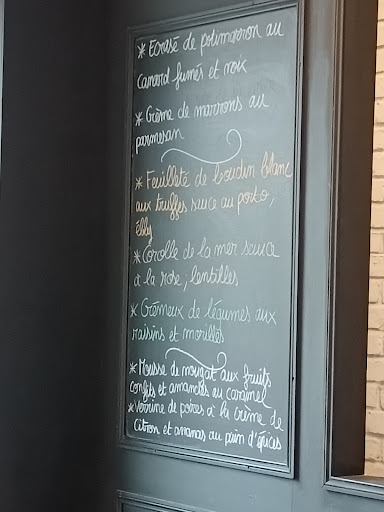 * Ecrasé de potimarron au
Canard fumés et noix
* Crème de marrons au
parmesan
* Feuilleté de boudin blanc
aux truffes sauce au porto,
* Corolle de la mer sauce
à la rose, lentilles
* Crémeux de légumes aux
raisins et morilles
* Mousse de nougat aux fruits
confits et amandes au caramel
* Verrine de poires à la crème de
Citron et ananas au pain d'épices